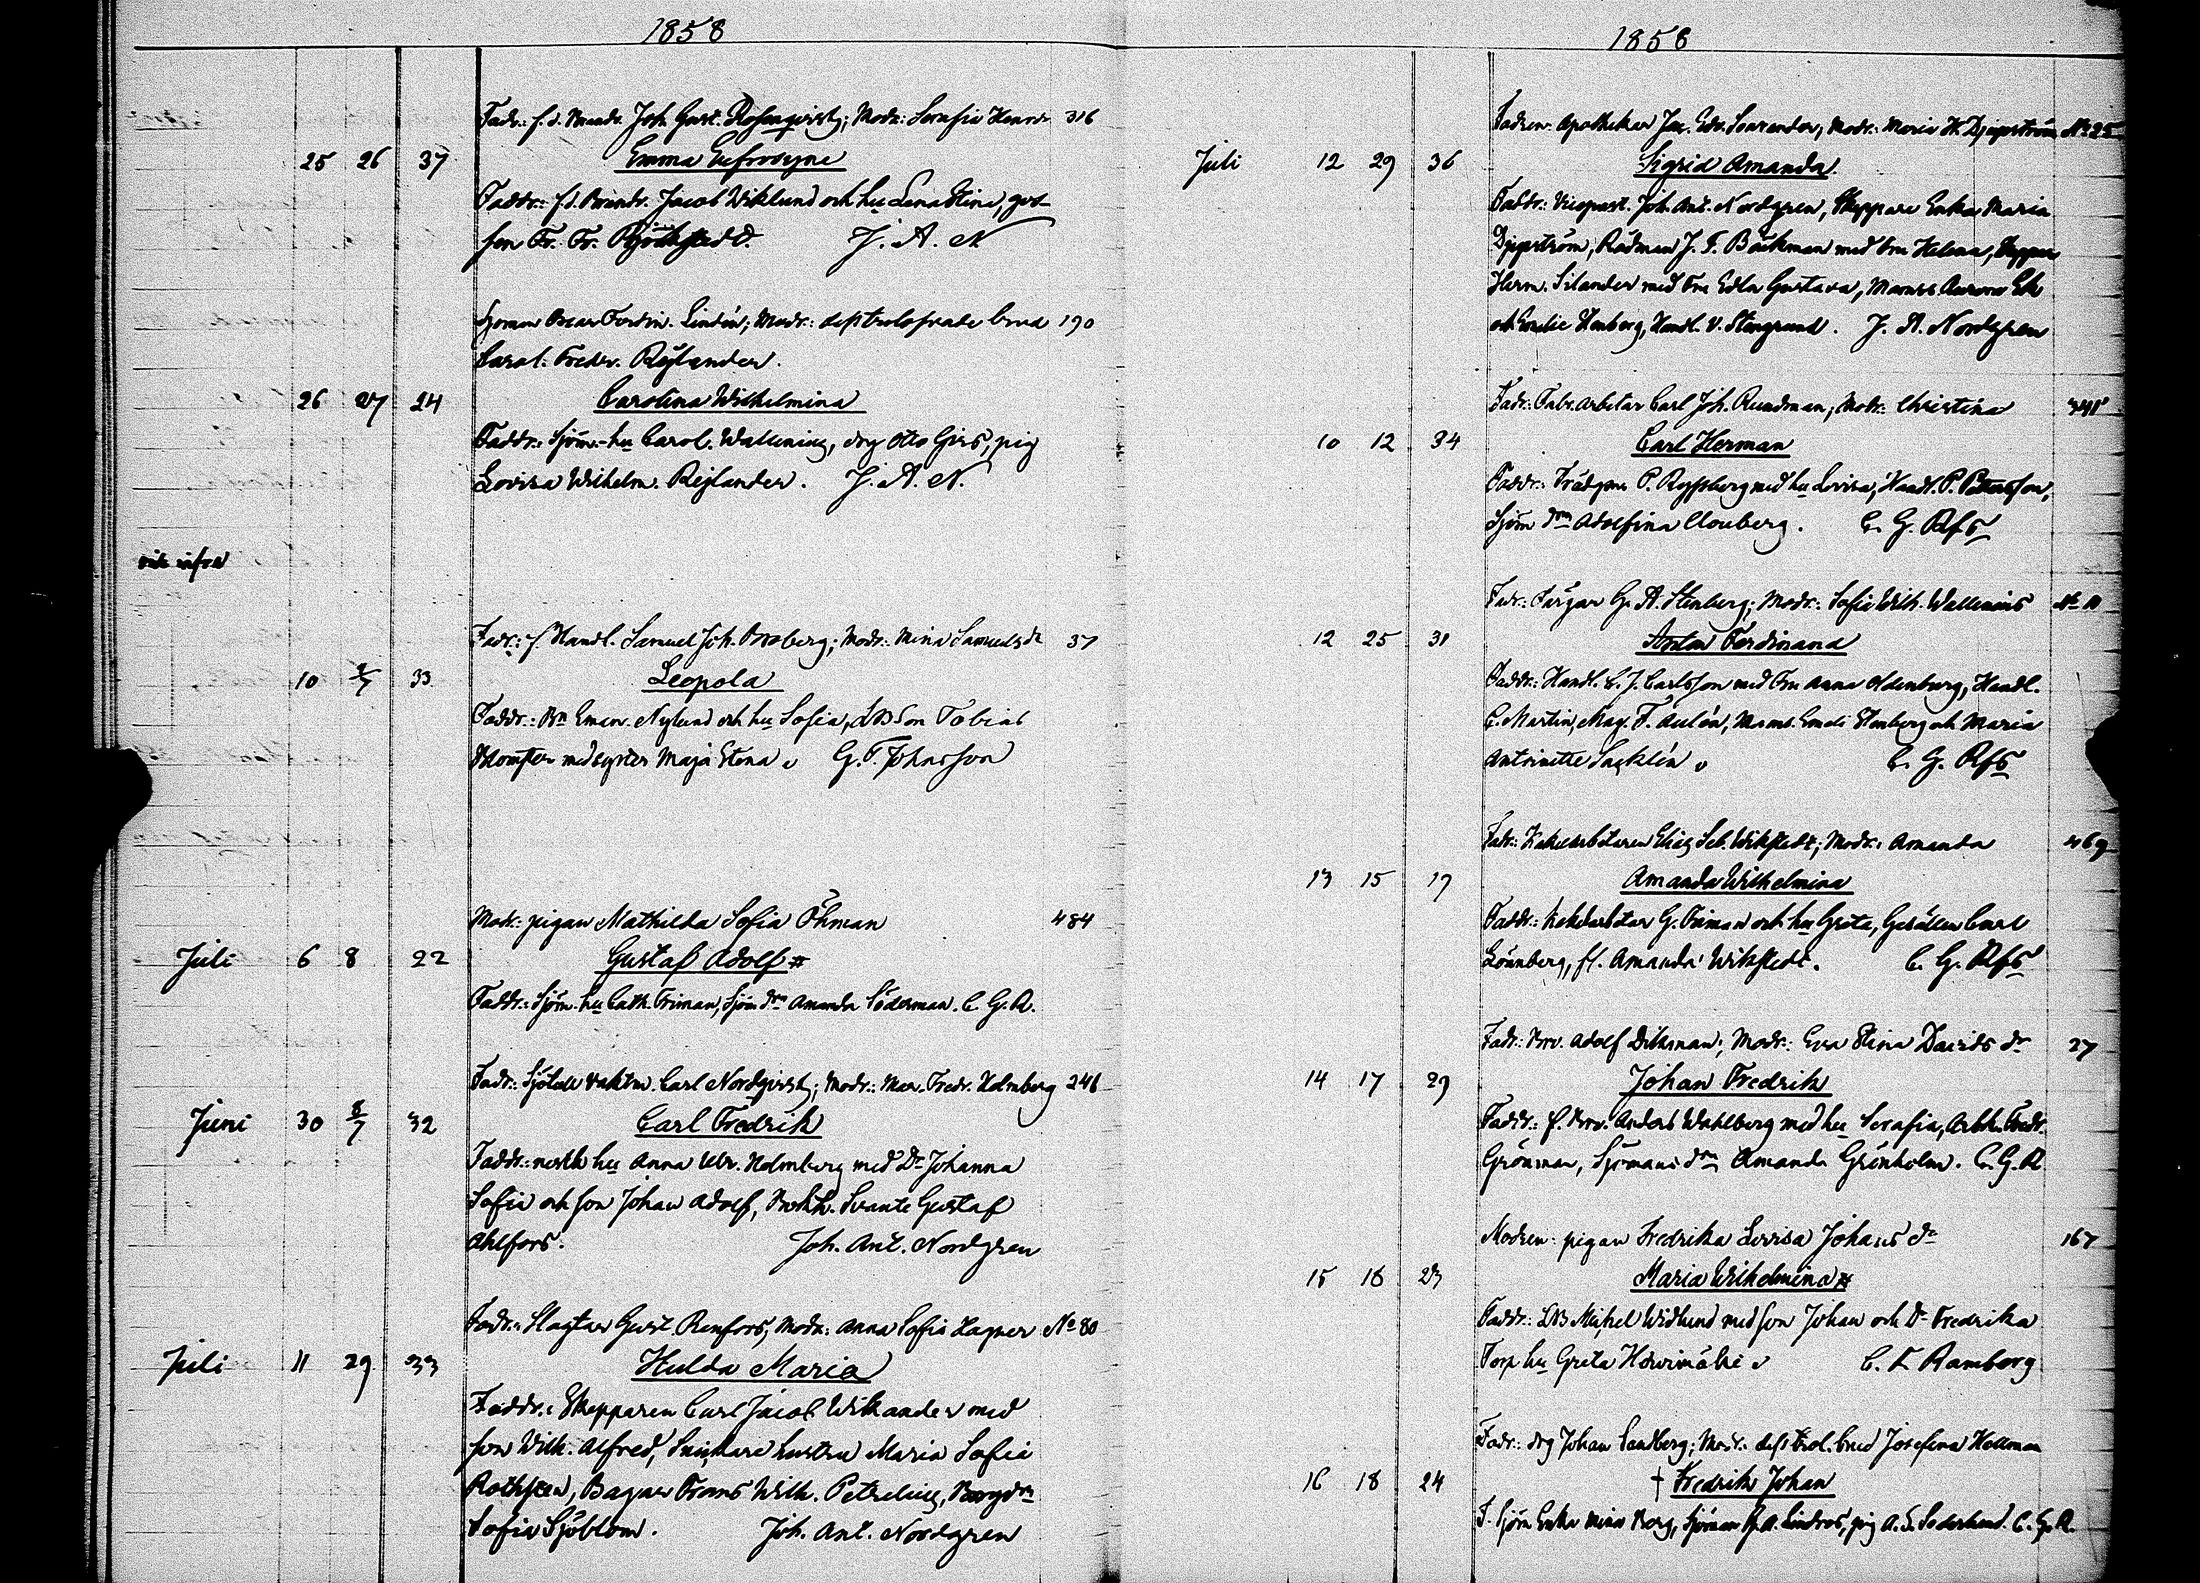 1858
Fadr.: f.d. Joh. Gust. Rosenqvist; Modr: Serafia 316
25 26 37 Emma Eufrosyne
Faddr.: f.d. Jacob Wiklund och hu Lena Stina,
son Fr. Fr. J. A. N
Sjöman Oscar Ferdin. Lindén; Modr: 190
Carol. Fredr. Rejlander.
26 27 24 Carolina Wilhelmina
Faddr.: Sjöm.-hu Carol. Wallenius, drg Otto Girs, pig
Lovisa Wilhelm. Rejlander. J. A. N.
vide infra
Fadr.: f. Handl. Samuel Joh. Modr: Mina Samuels dr 37
10 33 Leopold
Faddr.: Bn Eman. Nylund och hu Sofia, son Tobias
med syster Maja Stena G. F. Johnsson
Modr: pigan Mathilda Sofia Öhman 484
Juli 6 8 22 Gustaf Adolf #
Faddr.: Sjöm. hu Cath. Friman, Sjöm. drn Amanda Söderman. C. G. R.
Fadr.: vaktm. Carl Nordqvist; Modr: Mar. Fredr. Holmberg 246
Juni 30 8/7 32 Carl Fredrik
Faddr.: hu Anna Ulr. Holmberg med Dr Johanna
Sofia och son Johan Adolf, Svante Gustaf
Ahlfors. Joh. Ant. Nordgren
Fadr.: Slagtar Gust. Renfors; Modr: Anna Sofia Hagner No 80
Juli 11 29 33 Hulda Maria
Faddr.: Skepparen Carl Jacob Wikander med
son Wilh. Alfred, Snickare hustru Maria Sofia
Rothsten, Bagare Frans Wilh. Petrelius,
Sofia Sjöblom. Joh. Ant. Nordgren
1858
Fadren: Apothekar Jac. Edv. Modr: Maria H. Djupström No 25
Juli 12 29 36 Sigrid Amanda.
Faddr.: Vicepast. Joh. Ant. Nordgren, Skeppare Enka Maria
Djupström, Rådman J. F. Bäckman med fru Helena,
Herm. Silander med fru Edla Gustava,
och Emilie Stenberg, Handl. V. Stengrund. J. A. Nordgren
Fadr.: Fabr. arbetar Carl Joh. Rundman; Modr: Christina
10 12 34 Carl Herman
Faddr.: P. med hu Lovisa, Handl. P.
Sjöm drn Adolfina C. G. Rfs
Fadr.: Färgar G. A. Stenberg; Modr: Sofia Wilh. Wallenius
12 25 31 Anton Ferdinand
Faddr.: Handl. C. J. Carlsson med fru Anna Oldenburg, Handl.
C. Martin, Mag. F. Stenberg och Maria
Antoinette C. G. Rfs
Fadr.: Elias Seb. Wikstedt; Modr: Amanda 469
13 15 19 Amanda Wilhelmina
Faddr.: G. Friman och hu Greta, Gesällen Carl
Lönnberg, fl. Amanda Wikstedt. C. G. Rfs
Fadr.: Adolf Dikman; Modr: Eva Stina Davids dr 27
14 17 29 Johan Fredrik
Faddr.: f. Anders Wahlberg med hu Serafia,
Grönman, Sjömans drn Amanda Grönholm. C. G. R
Modren: pigan Fredrika Lovisa Johans dr 167
15 16 23 Maria Wilhelmina #
Faddr.: Michel Widlund med son Johan och Dr Fredrika
Torp hu Greta C. F. Ramberg
Fadr.: drg Johan Sandberg; Modr: Josefina Hollman
16 18 24 † Fredrik Johan
F. Sjöm Enka Mina Borg, Sjöman G. A. Lindros, pig A. S. Söderlund. C. G. R.